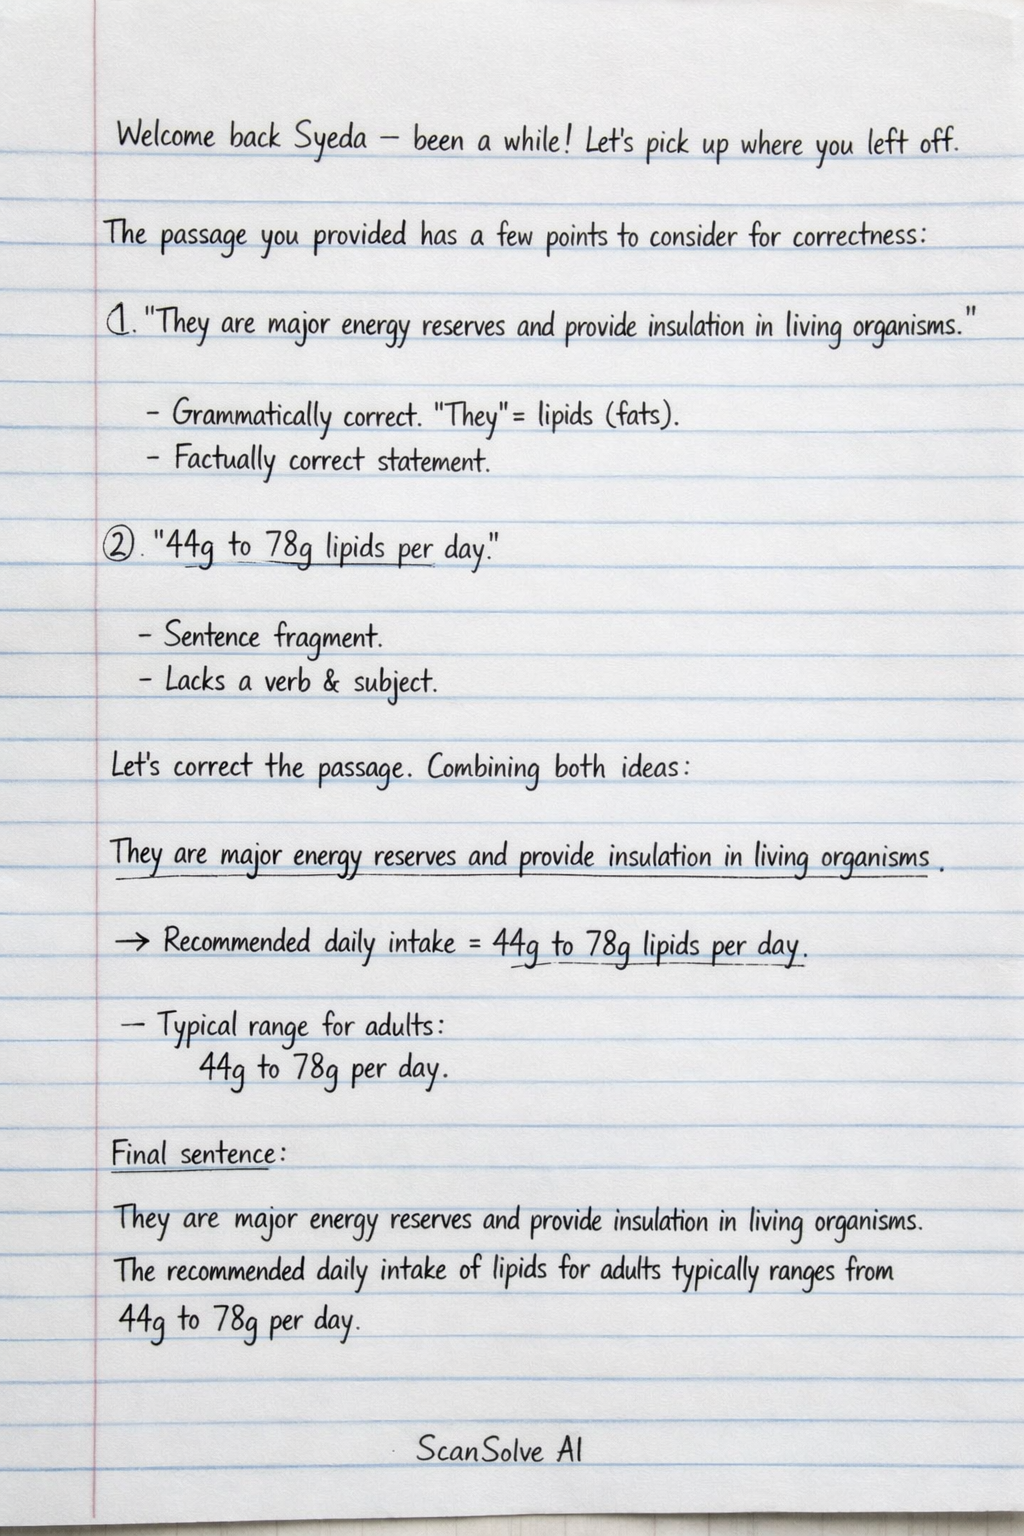 Welcome back Syeda – been a while! Let's pick up where you left off.
The passage you provided has a few points to consider for correctness:
1. "They are major energy reserves and provide insulation in living organisms."
- Grammatically correct. "They" = lipids (fats).
- Factually correct statement.
2. "44g to 78g lipids per day."
- Sentence fragment.
- Lacks a verb & subject.
Let's correct the passage. Combining both ideas:
They are major energy reserves and provide insulation in living organisms.
→ Recommended daily intake = 44g to 78g lipids per day.
– Typical range for adults:
44g to 78g per day.
Final sentence:
They are major energy reserves and provide insulation in living organisms.
The recommended daily intake of lipids for adults typically ranges from
44g to 78g per day.
ScanSolve AI